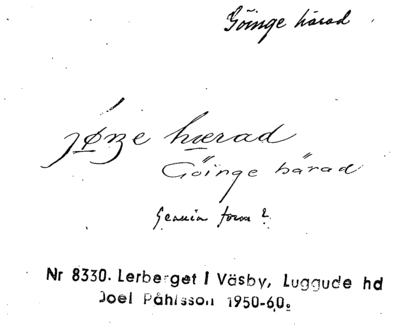 Göinge härad
jøŋe hærad
Göinge härad
form ?
Nr 8330. Lerberget i Väsby, Luggude hd
Joel Påhlsson 1950-60.